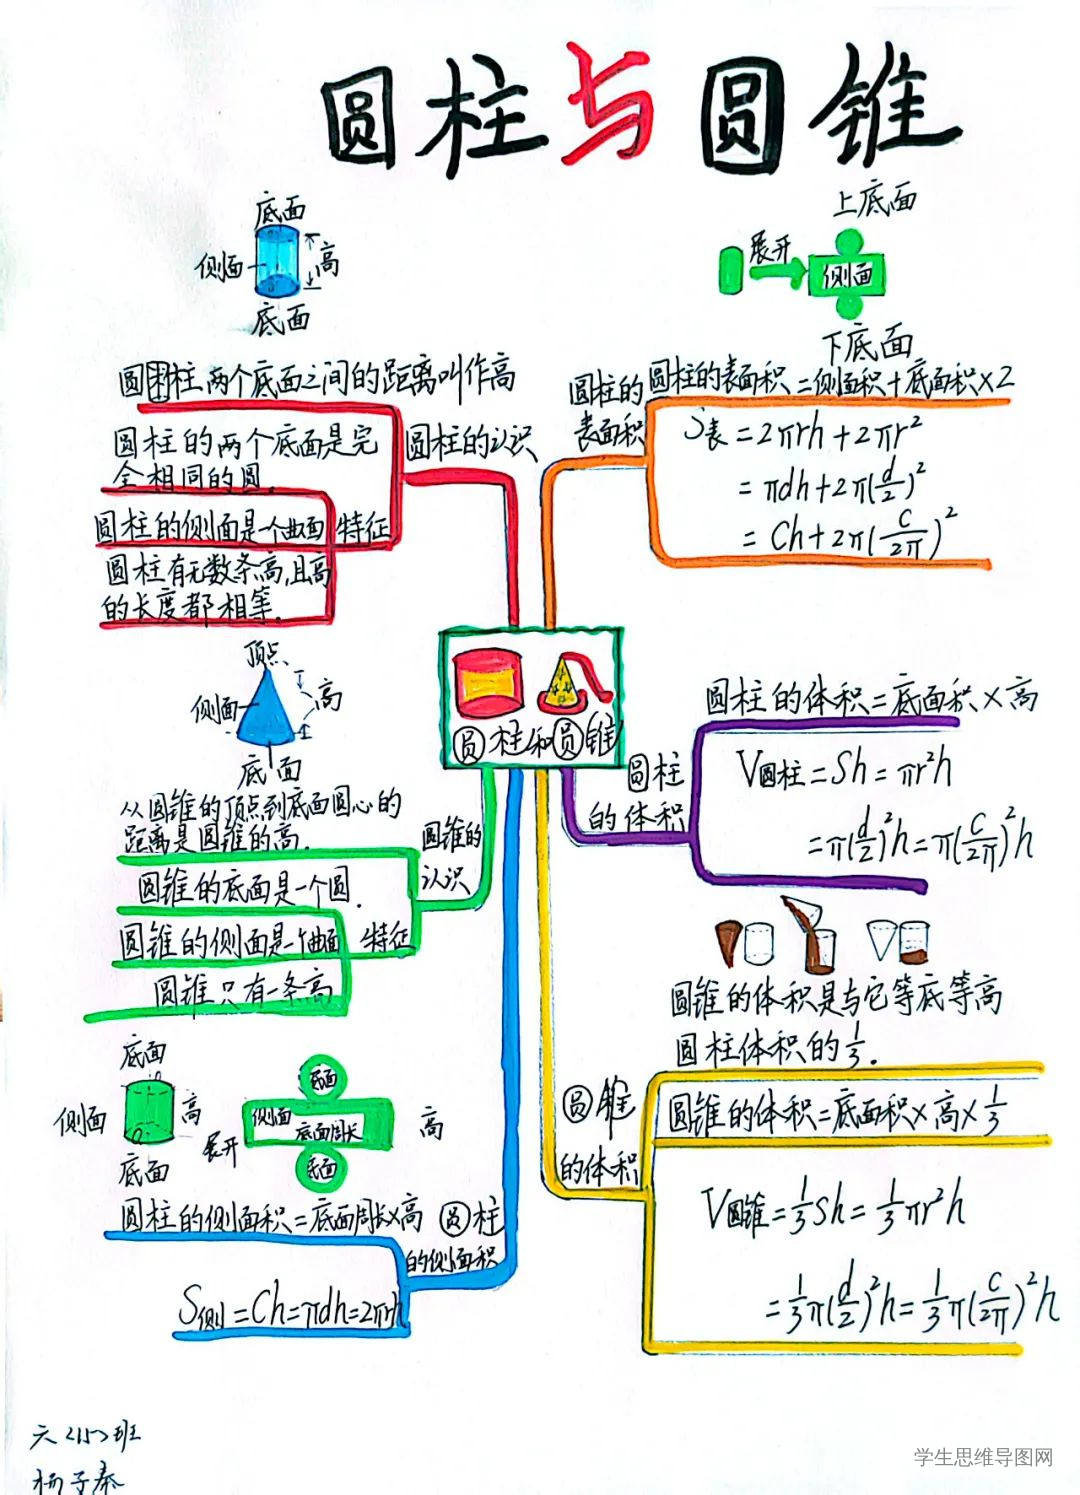 圆柱与圆锥
底面
侧面
高
底面
上底面
展开
侧面
下底面
圆柱两个底面之间的距离叫作高
圆柱的两个底面是完
全相同的圆.
圆柱的侧面是一个曲面
圆柱有无数条高,且高
的长度都相等.
特征
圆柱的认识
圆柱的
表面积
圆柱的表面积=侧面积+底面积×2
S表=2πrh+2πr²
=πdh+2π(d/2)²
=Ch+2π(C/2π)²
顶点
侧面
高
底面
从圆锥的顶点到底面圆心的
距离是圆锥的高.
圆锥的底面是一个圆.
圆锥的侧面是一个曲面
圆锥只有一条高
特征
圆锥的
认识
圆柱和圆锥
圆柱
的体积
圆柱的体积=底面积×高
V圆柱=Sh=πr²h
=π(d/2)²h=π(C/2π)²h
圆锥的体积是与它等底等高
圆柱体积的1/3.
圆锥
的体积
圆锥的体积=底面积×高×1/3
V圆锥=1/3Sh=1/3πr²h
=1/3π(d/2)²h=1/3π(C/2π)²h
底面
侧面
高
底面
展开
底面
侧面
底面周长
底面
高
圆柱的侧面积=底面周长×高
圆柱
的侧面积
S侧=Ch=πdh=2πrh
六〈15〉班
学生思维导图网